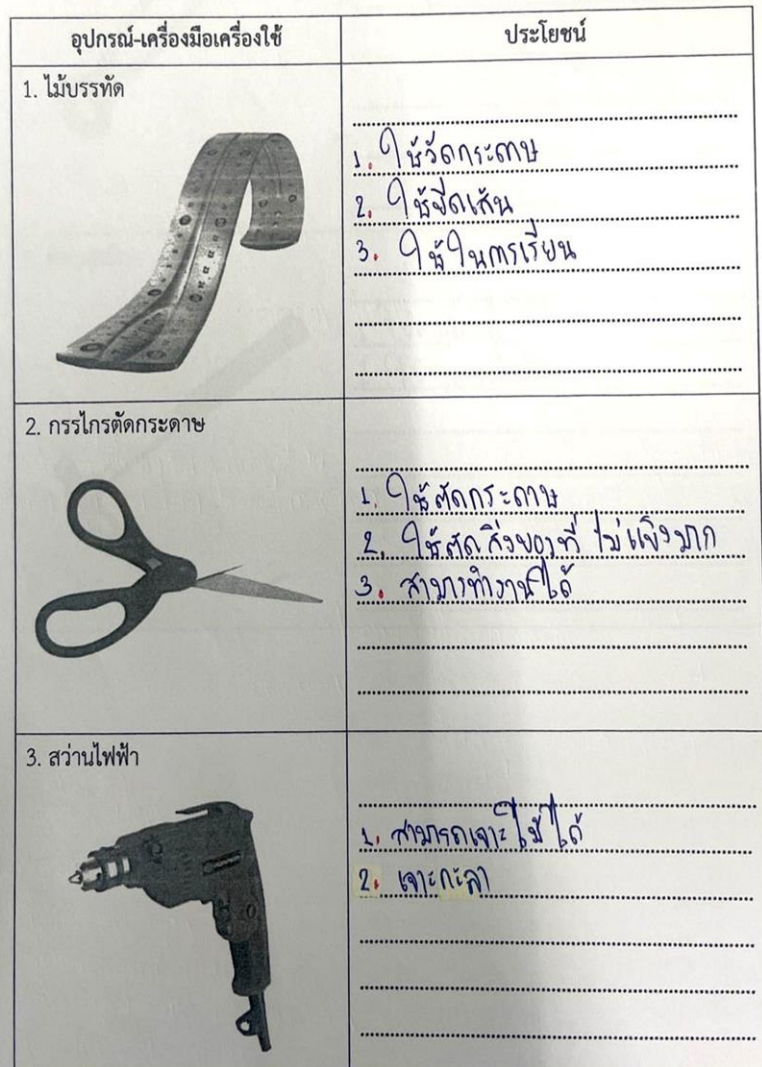 อุปกรณ์-เครื่องมือเครื่องใช้
ประโยชน์
1. ไม้บรรทัด
1. ใช้วัดกระดาษ
2. ใช้ขีดเส้น
3. ใช้ในการเรียน
2. กรรไกรตัดกระดาษ
1. ใช้ตัดกระดาษ
2. ใช้ตัดสิ่งของที่ ไม่แข็งมาก
3. สามารทำงานได้
3. สว่านไฟฟ้า
1. สามารถเจาะไม้ได้
2. เจาะกะลา